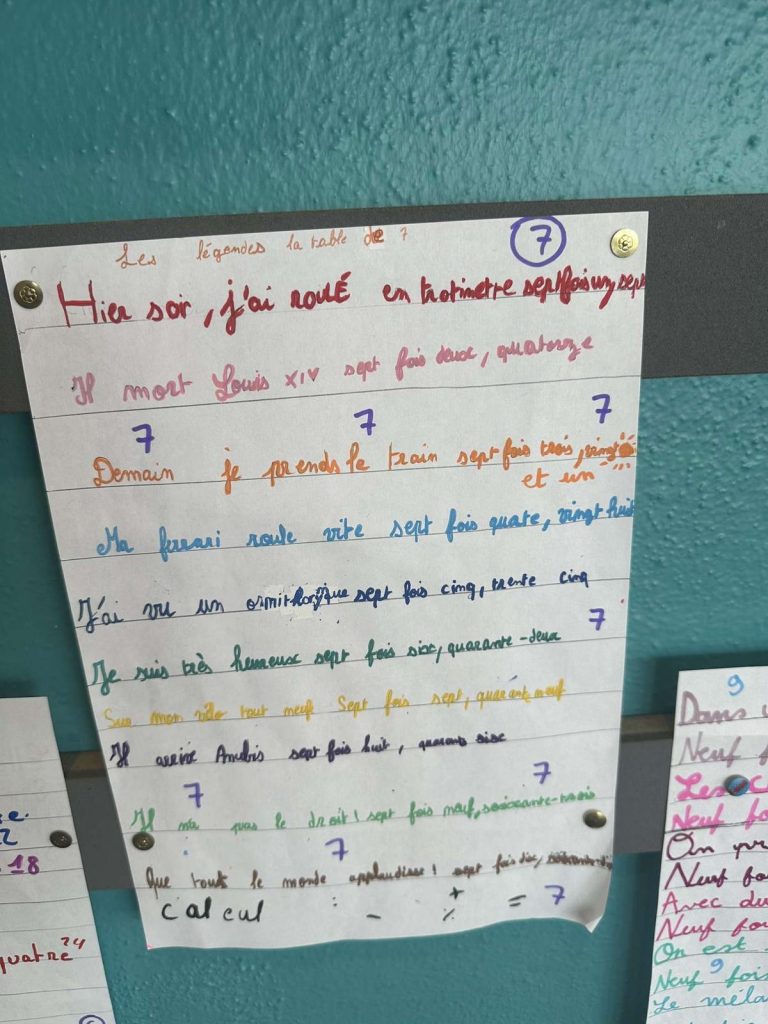 Les légendes la table de 7
7
Hier soir, j'ai roulé en trotinetre sept fois un sept
Il mort Louis XIV sept fois deux, quatorze
7 7 7
Demain je prends le train sept fois trois, vingt
et un
Ma ferrari roule vite sept fois quate, vingt huit
J'ai vu un ornithorynque sept fois cinq, trente cinq
7
Je suis très heureux sept fois six, quarante-deux
Sur mon vélo tout neuf Sept fois sept, quarante neuf
Il arrive Anubis sept fois huit, quarante sisc
7 7
Il n'a pas le droit! sept fois neuf, soixante-trois
7
Que tout le monde applaudisse! sept fois dix, soixante-dix
calcul : - + % = 7
e.
2
18
quatre 24
9
Dans
Neuf f
Les
Neuf fo
On pr
Neuf foi
Avec du
Neuf foi
On est
Neuf 9 fois
Le méla